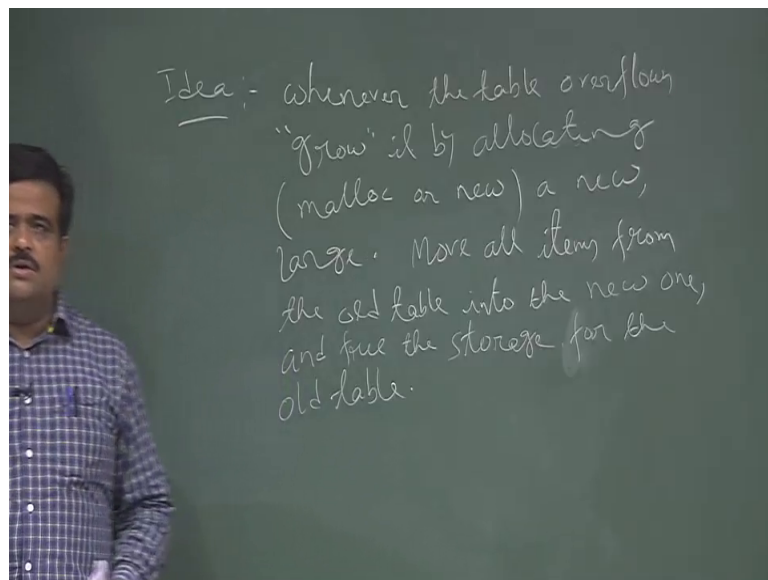 Idea :- whenever the table overflows
"grow" it by allocating
(malloc or new) a new,
large. Move all items from
the old table into the new one,
and free the storage for the
old table.